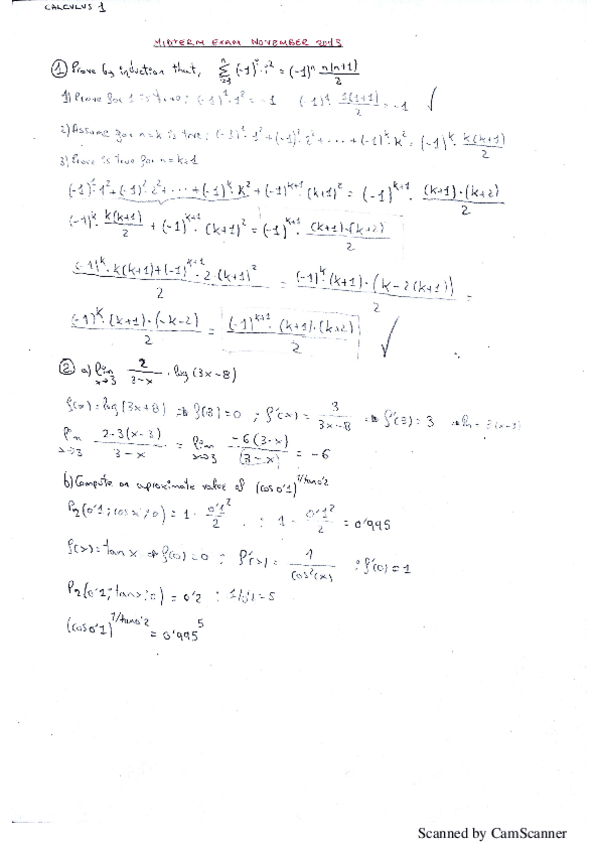 CALCULUS 1
MIDTERM EXAM NOVEMBER 2015
① Prove by induction that, Σ_{i=1}^{n} (-1)^i · i² = (-1)^n n(n+1)/2
1) Prove for 1 is true: (-1)^1 · 1² = -1 (-1)^1 1(1+1)/2 = -1 √
2) Assume for n=k is true: (-1)^1 · 1² + (-1)^2 · 2² + ··· + (-1)^k · k² = (-1)^k · k(k+1)/2
3) Prove is true for n=k+1
(-1)^1 · 1² + (-1)^2 · 2² + ··· + (-1)^k · k² + (-1)^{k+1} · (k+1)² = (-1)^{k+1} · (k+1)·(k+2)/2
(-1)^k · k(k+1)/2 + (-1)^{k+1} · (k+1)² = (-1)^{k+1} · (k+1)·(k+2)/2
(-1)^k · k(k+1) + (-1)^{k+1} · 2·(k+1)²/2 = (-1)^k · (k+1)·(k-2(k+1))/2 =
(-1)^k · (k+1)·(-k-2)/2 = (-1)^{k+1} · (k+1)·(k+2)/2 √
② a) lim x→3 2/(3-x) · log(3x-8)
f(x)=log(3x+8) ⇒ f(3)=0 ; f'(x) = 3/(3x-8) ⇒ f'(3)=3
lim x→3 2·3(x-3)/(3-x) = lim x→3 -6(3-x)/(3-x) = -6
b) Compute an aproximate value of (cos 0'1)^{1/tan 0'2}
P₂(0'1; cos x; 0) = 1 - 0'1²/2 ; 1 - 0'1²/2 = 0'995
f(x)=tan x ⇒ f(0)=0 ; f'(x) = 1/cos²(x) ; f'(0)=1
P₂(0'2; tan x; 0) = 0'2
(cos 0'1)^{1/tan 0'2} = 0'995^5
Scanned by CamScanner